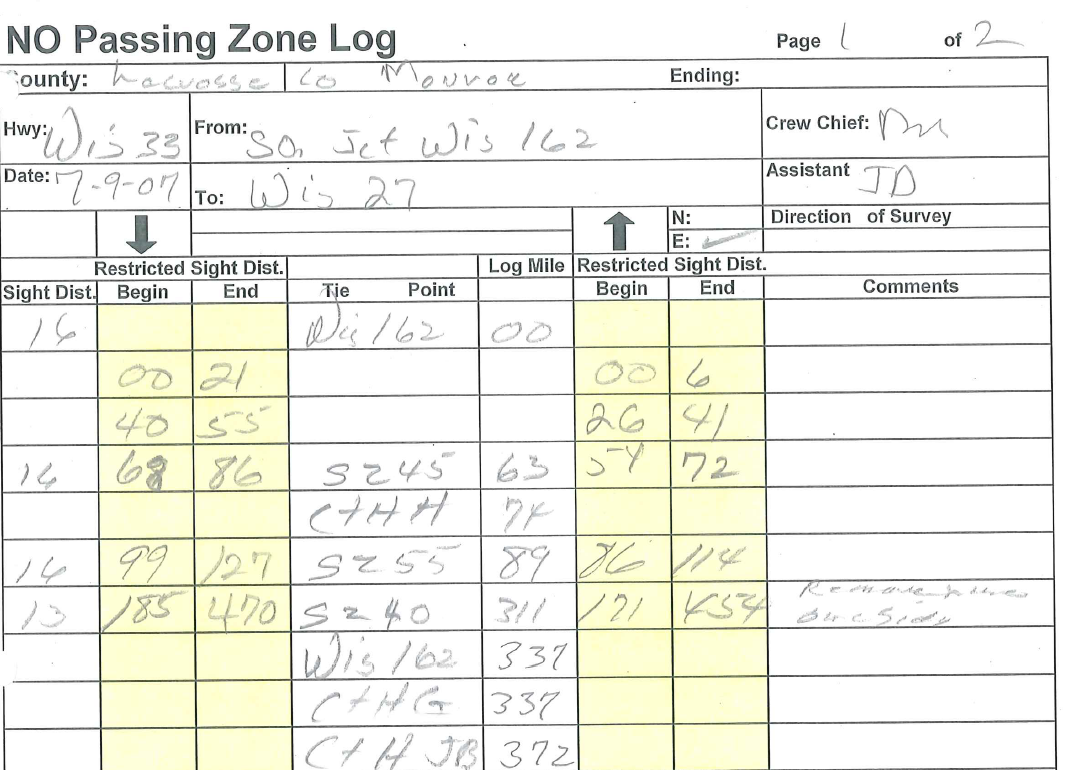 NO Passing Zone Log Page 1 of 2
County: Lacrosse Co Monroe Ending:
Hwy: Wis 33 From: So. Jct Wis 162 Crew Chief:
Date: 7-9-07 To: Wis 27 Assistant JD
N: Direction of Survey
E: ✓
Restricted Sight Dist. Log Mile Restricted Sight Dist.
Sight Dist. Begin End Tie Point Begin End Comments
16 Wis 162 00
00 21 00 6
40 55 26 41
16 68 86 SZ45 63 54 72
CTH H 74
16 99 127 SZ55 89 86 114
13 185 470 SZ40 311 171 454 Remove
one side
Wis 162 337
CTH G 337
CTH JB 372